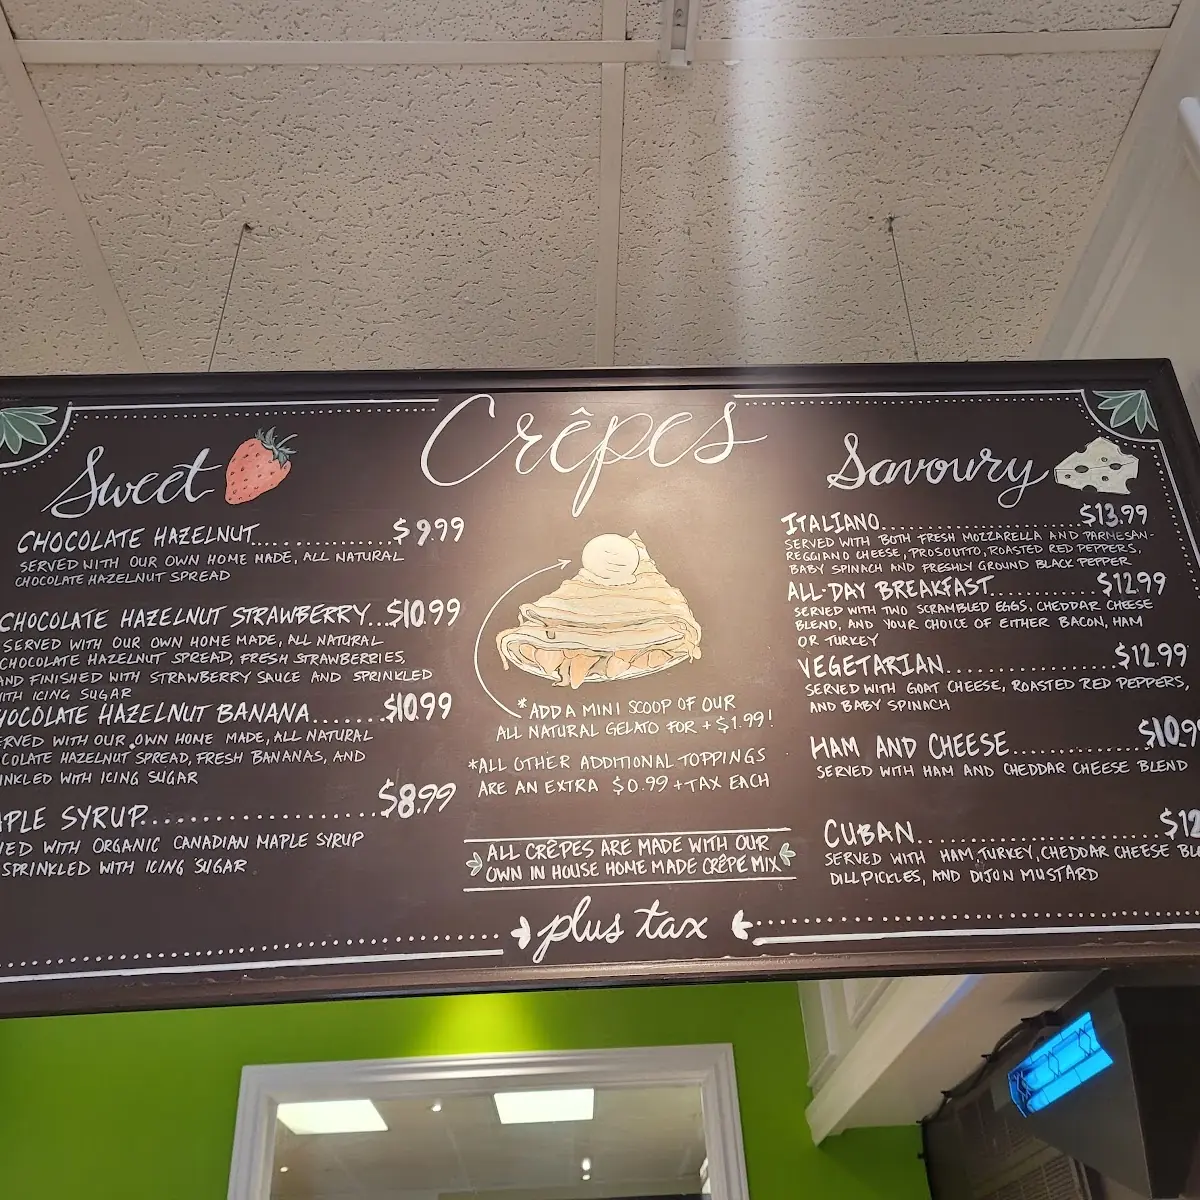 Crêpes
Sweet
CHOCOLATE HAZELNUT............$9.99
SERVED WITH OUR OWN HOME MADE, ALL NATURAL
CHOCOLATE HAZELNUT SPREAD
CHOCOLATE HAZELNUT STRAWBERRY...$10.99
SERVED WITH OUR OWN HOME MADE, ALL NATURAL
CHOCOLATE HAZELNUT SPREAD, FRESH STRAWBERRIES,
AND FINISHED WITH STRAWBERRY SAUCE AND SPRINKLED
ITH ICING SUGAR
HOCOLATE HAZELNUT BANANA.......$10.99
ERVED WITH OUR OWN HOME MADE, ALL NATURAL
COLATE HAZELNUT SPREAD, FRESH BANANAS, AND
INKLED WITH ICING SUGAR
PLE SYRUP......................$8.99
IED WITH ORGANIC CANADIAN MAPLE SYRUP
SPRINKLED WITH ICING SUGAR
*ADD A MINI SCOOP OF OUR
ALL NATURAL GELATO FOR +$1.99!
*ALL OTHER ADDITIONAL TOPPINGS
ARE AN EXTRA $0.99 +TAX EACH
ALL CRÊPES ARE MADE WITH OUR
OWN IN HOUSE HOME MADE CRÊPE MIX
plus tax
Savoury
ITALIANO......................$13.99
SERVED WITH BOTH FRESH MOZZARELLA AND PARMESAN-
REGGIANO CHEESE, PROSCUTTO, ROASTED RED PEPPERS,
BABY SPINACH AND FRESHLY GROUND BLACK PEPPER
ALL-DAY BREAKFAST............$12.99
SERVED WITH TWO SCRAMBLED EGGS, CHEDDAR CHEESE
BLEND, AND YOUR CHOICE OF EITHER BACON, HAM
OR TURKEY
VEGETARIAN...................$12.99
SERVED WITH GOAT CHEESE, ROASTED RED PEPPERS,
AND BABY SPINACH
HAM AND CHEESE..............$10.99
SERVED WITH HAM AND CHEDDAR CHEESE BLEND
CUBAN.........................$12
SERVED WITH HAM, TURKEY, CHEDDAR CHEESE BL
DILL PICKLES, AND DIJON MUSTARD